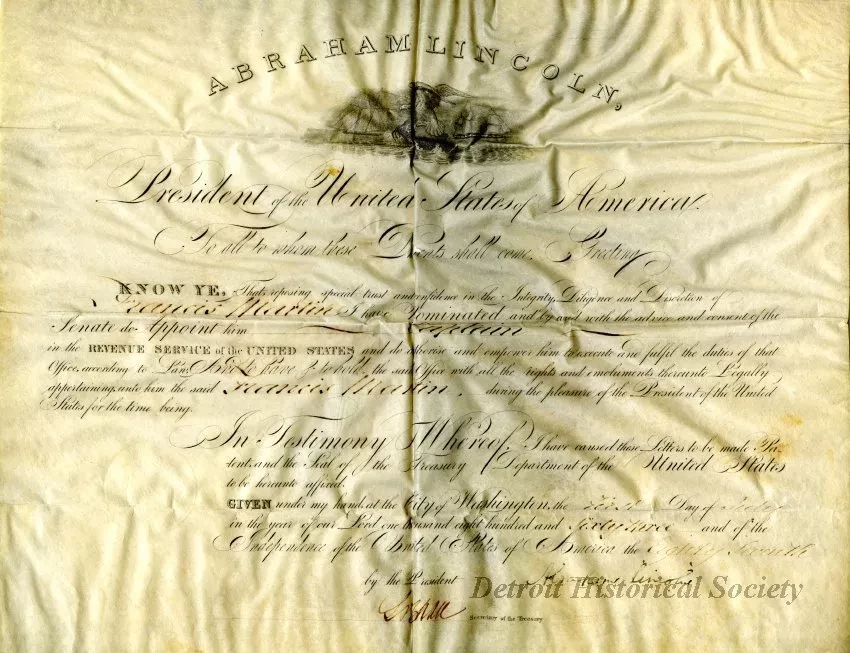 ABRAHAM LINCOLN,
President of the United States of America.
To all to whom these Presents shall come, Greeting
KNOW YE, That reposing special trust and confidence in the Integrity, Diligence and Discretion of
Francis Martin I have Nominated and by and with the advice and consent of the
Senate do Appoint him Captain
in the REVENUE SERVICE of the UNITED STATES and do authorise and empower him to execute and fulfil the duties of that
Office, according to Law; And to have & to hold the said Office with all the rights and emoluments thereunto Legally
appertaining, unto him the said Francis Martin, during the pleasure of the President of the United
States for the time being.
In Testimony Whereof, I have caused these Letters to be made Pa-
tent, and the Seal of the Treasury Department of the United States
to be hereunto affixed.
GIVEN under my hand, at the City of Washington, the first Day of
in the year of our Lord one thousand eight hundred and Sixty three and of the
Independence of the United States of America the Eighty Seventh
by the President Abraham Lincoln
Detroit Historical Society
Secretary of the Treasury